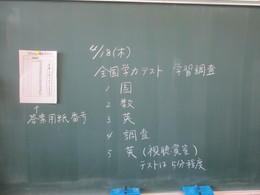 4/18(木)
全国学力テスト 学習調査
1 国
2 数
3 英
4 調査
5 英(視聴覚室)
テストは5分程度
↑
答案用紙番号